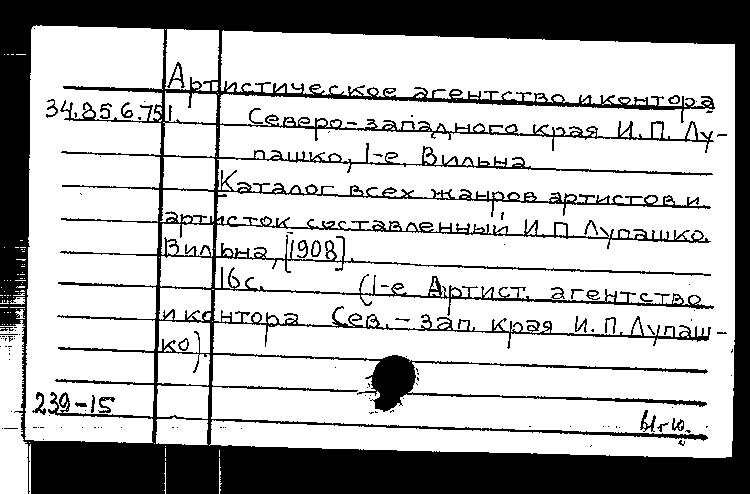 Артистическое агентство и контора
34.85.6.751. Северо-западного края И.П. Лу-
пашко, 1-е. Вильна
Каталог всех жанров артистов и
артисток составленный И.П Лупашко.
Вильна, [1908].
16с. (1-е Артист. агентство
и контора Сев.-зап. края И.П. Лупаш-
ко).
239-15